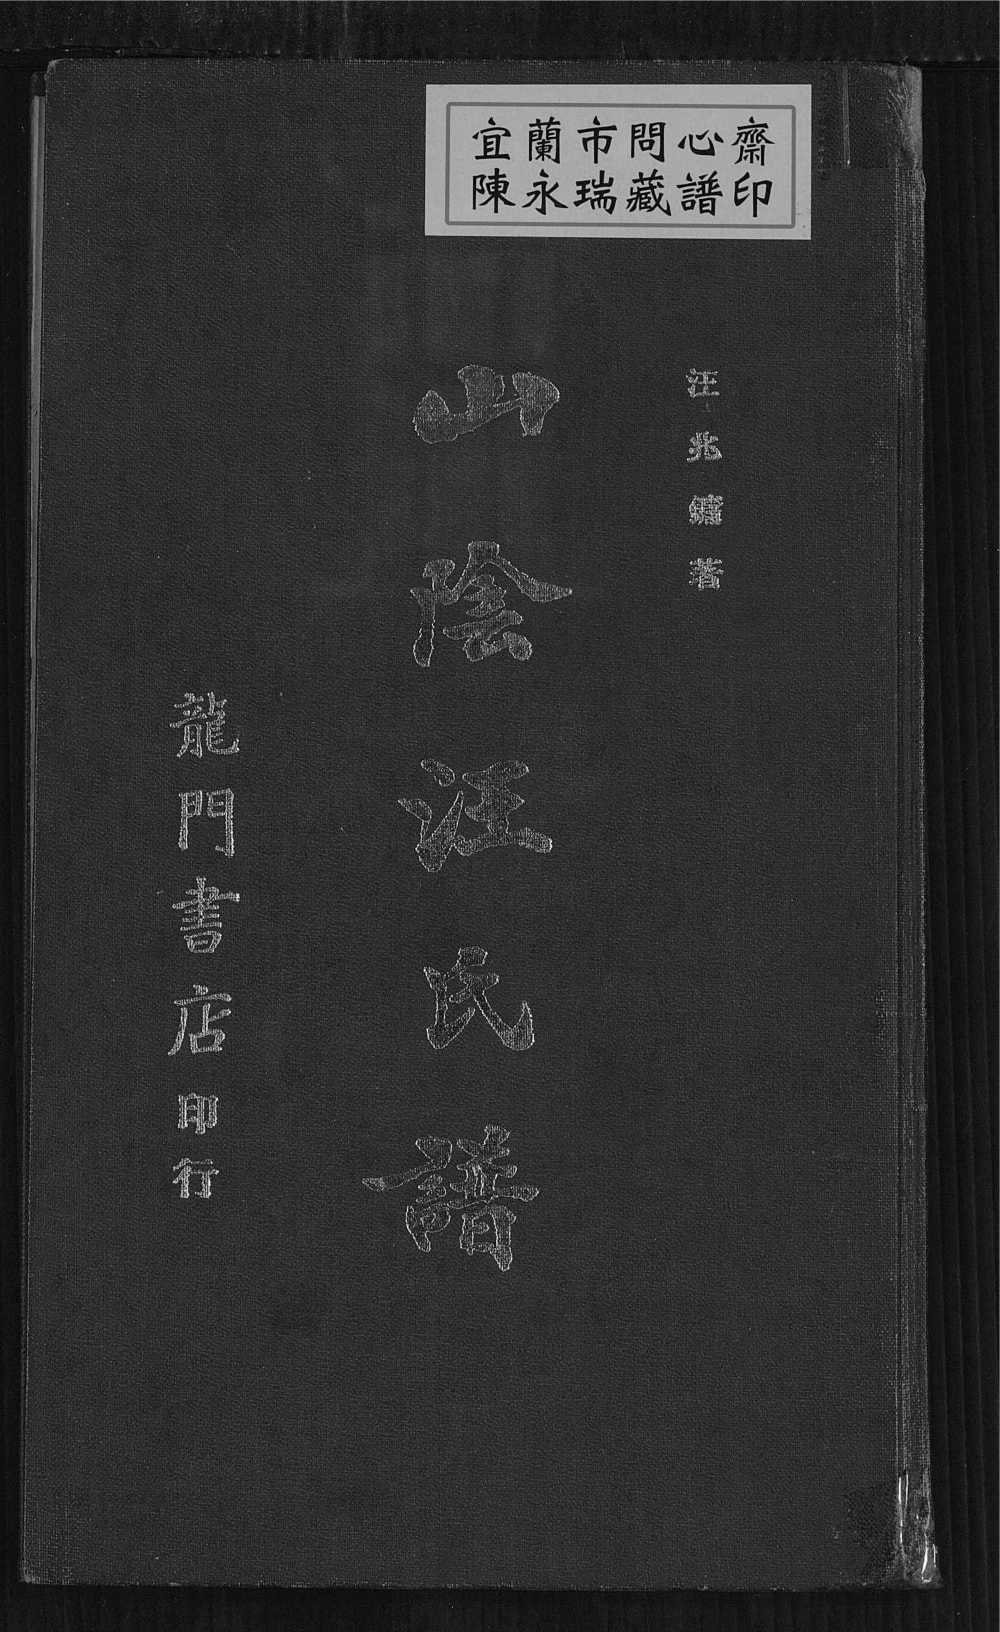 宜蘭市問心齋
陳永瑞藏譜印
汪兆鏞著
山陰汪氏譜
龍門書店印行